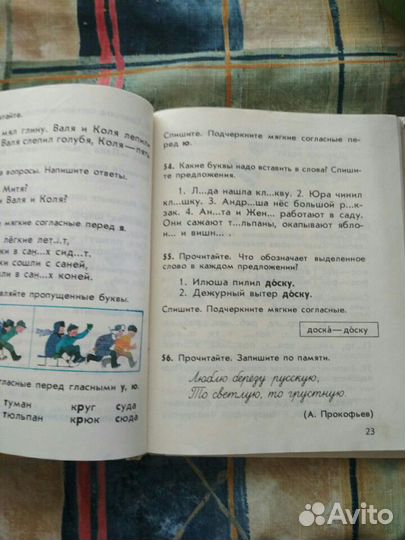 итайте.
мял глину. Валя и Коля лепили
Валя слепил голубя, Коля — пять
а вопросы. Напишите ответы.
Митя?
Валя и Коля?
мягкие согласные перед я.
лёгкие лет...т,
и в сан...х сид...т.
ки сошли с саней,
и в сан...х коней.
вляйте пропущенные буквы.
гласные перед гласными у, ю.
туман круг суда
тюльпан крюк сюда
Спишите. Подчеркните мягкие согласные пе-
ред ю.
54. Какие буквы надо вставить в слова? Спиши-
те предложения.
1. Л...да нашла кл...кву. 2. Юра чинил
кл...шку. 3. Андр...ша нёс большой р...к-
зак. 4. Ан...та и Жен... работают в саду.
Они сажают т...льпаны, окапывают ябло-
н... и вишн... .
55. Прочитайте. Что обозначает выделенное
слово в каждом предложении?
1. Илюша пилил до́ску.
2. Дежурный вытер до́ску.
Спишите. Подчеркните мягкие согласные.
доска́ — до́ску
56. Прочитайте. Запишите по памяти.
Люблю берёзу русскую,
То светлую, то грустную.
(А. Прокофьев)
23
Avito